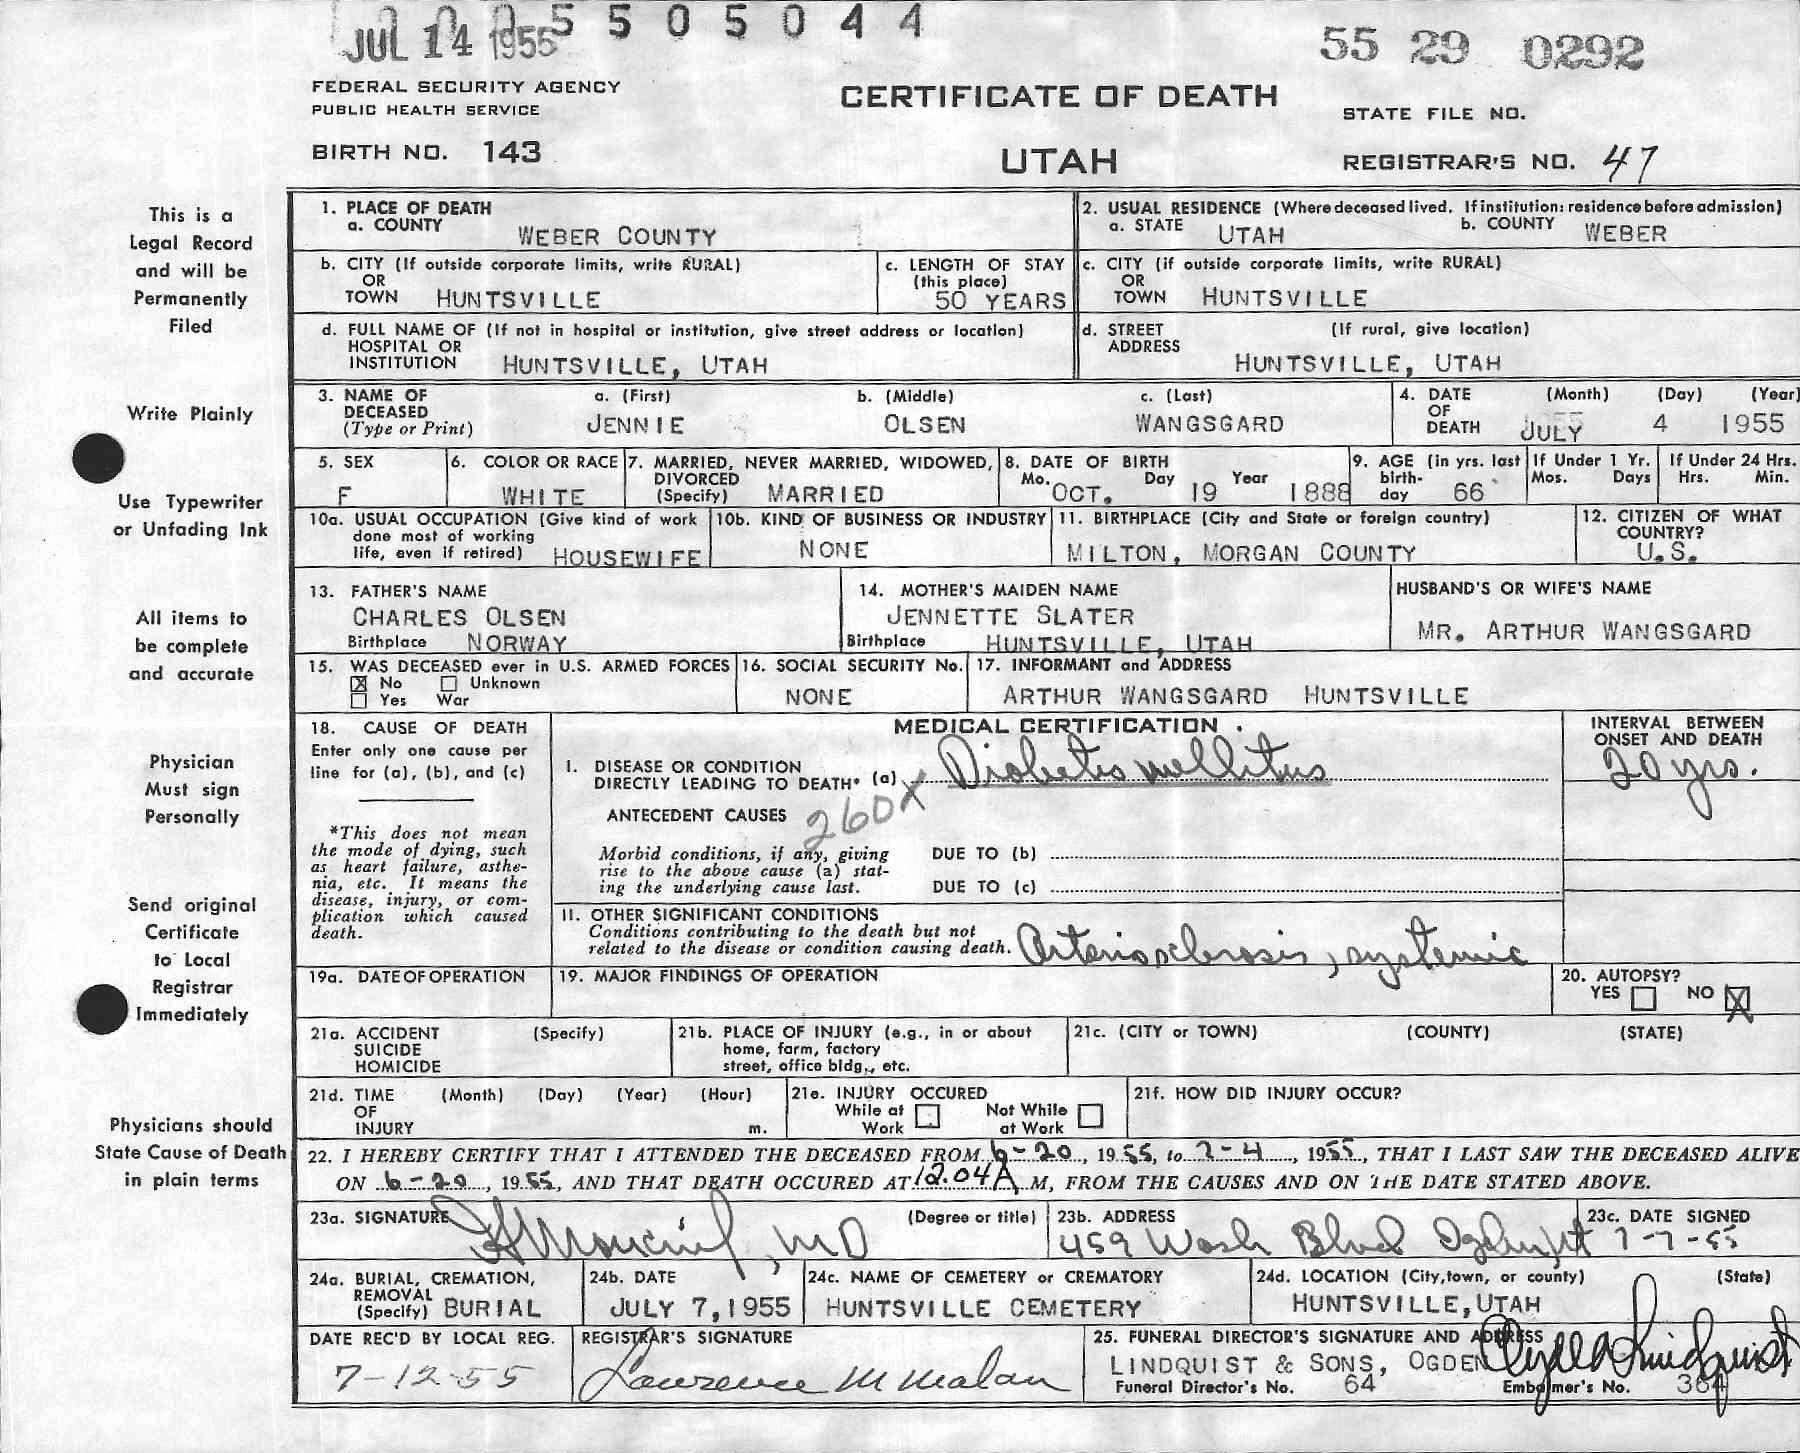 JUL 14 1955 5 5 0 5 0 4 4
55 29 0292
FEDERAL SECURITY AGENCY
PUBLIC HEALTH SERVICE
CERTIFICATE OF DEATH
STATE FILE NO.
BIRTH NO. 143
UTAH
REGISTRAR'S NO. 47
This is a
Legal Record
and will be
Permanently
Filed
Write Plainly
Use Typewriter
or Unfading Ink
All items to
be complete
and accurate
Physician
Must sign
Personally
Send original
Certificate
to Local
Registrar
Immediately
Physicians should
State Cause of Death
in plain terms
1. PLACE OF DEATH
a. COUNTY WEBER COUNTY
2. USUAL RESIDENCE (Where deceased lived. If institution: residence before admission)
a. STATE UTAH b. COUNTY WEBER
b. CITY (If outside corporate limits, write RURAL)
OR
TOWN HUNTSVILLE
c. LENGTH OF STAY
(this place)
50 YEARS
c. CITY (if outside corporate limits, write RURAL)
OR
TOWN HUNTSVILLE
d. FULL NAME OF (If not in hospital or institution, give street address or location)
HOSPITAL OR
INSTITUTION HUNTSVILLE, UTAH
d. STREET (If rural, give location)
ADDRESS
HUNTSVILLE, UTAH
3. NAME OF a. (First) b. (Middle) c. (Last)
DECEASED
(Type or Print) JENNIE OLSEN WANGSGARD
4. DATE (Month) (Day) (Year)
OF
DEATH JULY 4 1955
5. SEX
F
6. COLOR OR RACE
WHITE
7. MARRIED, NEVER MARRIED, WIDOWED,
DIVORCED
(Specify) MARRIED
8. DATE OF BIRTH
Mo. Day Year
OCT. 19 1888
9. AGE (in yrs. last
birth-
day 66
If Under 1 Yr.
Mos. Days
If Under 24 Hrs.
Hrs. Min.
10a. USUAL OCCUPATION (Give kind of work
done most of working
life, even if retired) HOUSEWIFE
10b. KIND OF BUSINESS OR INDUSTRY
NONE
11. BIRTHPLACE (City and State or foreign country)
MILTON, MORGAN COUNTY
12. CITIZEN OF WHAT
COUNTRY?
U.S.
13. FATHER'S NAME
CHARLES OLSEN
Birthplace NORWAY
14. MOTHER'S MAIDEN NAME
JENNETTE SLATER
Birthplace HUNTSVILLE, UTAH
HUSBAND'S OR WIFE'S NAME
MR. ARTHUR WANGSGARD
15. WAS DECEASED ever in U.S. ARMED FORCES
No Unknown
Yes War
16. SOCIAL SECURITY No.
NONE
17. INFORMANT and ADDRESS
ARTHUR WANGSGARD HUNTSVILLE
18. CAUSE OF DEATH
Enter only one cause per
line for (a), (b), and (c)
*This does not mean
the mode of dying, such
as heart failure, asthe-
nia, etc. It means the
disease, injury, or com-
plication which caused
death.
MEDICAL CERTIFICATION
INTERVAL BETWEEN
ONSET AND DEATH
I. DISEASE OR CONDITION
DIRECTLY LEADING TO DEATH* (a) Diabetes mellitus 20 yrs.
ANTECEDENT CAUSES 260X
Morbid conditions, if any, giving
rise to the above cause (a) stat-
ing the underlying cause last.
DUE TO (b)
DUE TO (c)
II. OTHER SIGNIFICANT CONDITIONS
Conditions contributing to the death but not
related to the disease or condition causing death. Arteriosclerosis, systemic
19a. DATE OF OPERATION
19. MAJOR FINDINGS OF OPERATION
20. AUTOPSY?
YES NO X
21a. ACCIDENT (Specify)
SUICIDE
HOMICIDE
21b. PLACE OF INJURY (e.g., in or about
home, farm, factory
street, office bldg., etc.
21c. (CITY or TOWN) (COUNTY) (STATE)
21d. TIME (Month) (Day) (Year) (Hour)
OF
INJURY m.
21e. INJURY OCCURED
While at Not While
Work at Work
21f. HOW DID INJURY OCCUR?
22. I HEREBY CERTIFY THAT I ATTENDED THE DECEASED FROM 6-20, 1955, to 7-4, 1955, THAT I LAST SAW THE DECEASED ALIVE
ON 6-20, 1955, AND THAT DEATH OCCURED AT 12.04A M, FROM THE CAUSES AND ON THE DATE STATED ABOVE.
23a. SIGNATURE (Degree or title)
MD
23b. ADDRESS
459 Wash Blvd Ogden, Ut
23c. DATE SIGNED
7-7-55
24a. BURIAL, CREMATION,
REMOVAL
(Specify) BURIAL
24b. DATE
JULY 7, 1955
24c. NAME OF CEMETERY or CREMATORY
HUNTSVILLE CEMETERY
24d. LOCATION (City, town, or county) (State)
HUNTSVILLE, UTAH
DATE REC'D BY LOCAL REG.
7-12-55
REGISTRAR'S SIGNATURE
Lawrence M Malan
25. FUNERAL DIRECTOR'S SIGNATURE AND ADDRESS
LINDQUIST & SONS, OGDEN
Funeral Director's No. 64 Embalmer's No. 364